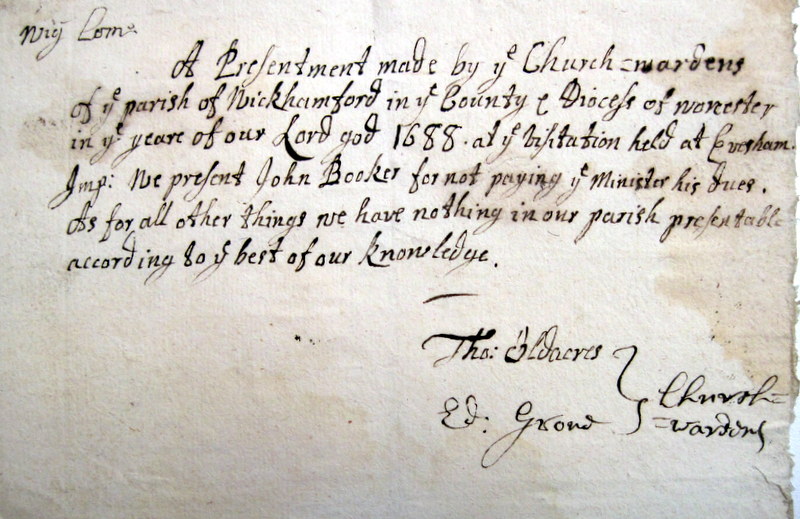 Wig Com:
A Presentment made by yᵉ Church=wardens
of yᵉ parish of Wickhamford in yᵉ County & Diocess of worcester
in yᵉ yeare of our Lord god 1688. at yᵉ Visitation held at Evesham.
Imp: We present John Booker for not paying yᵉ Minister his dues.
As for all other things we have nothing in our parish presentable
according to yᵉ best of our knowledge.
Tho: Oldacres
Ed: Grove
Church=
=wardens